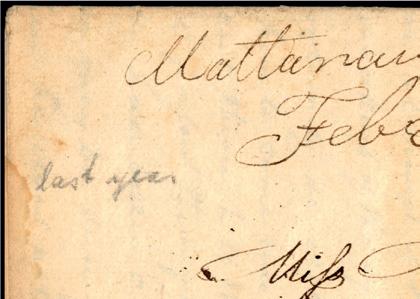 Mattanaw
Febr
last year
Miss